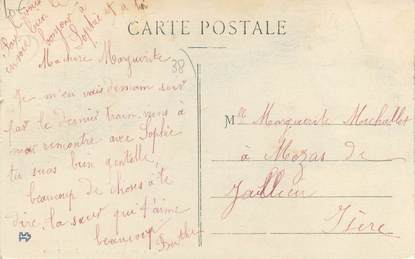 CARTE POSTALE
38
Ma chère Marguerite
Je m'en vais demain soir
par le dernier train, viens à
ma rencontre avec Sophie
tu seras bien gentille,
beaucoup de choses à te
dire, ta sœur qui t'aime
beaucoup
Mlle Marguerite Michallet
à Mozas de
Jallieu
Isère